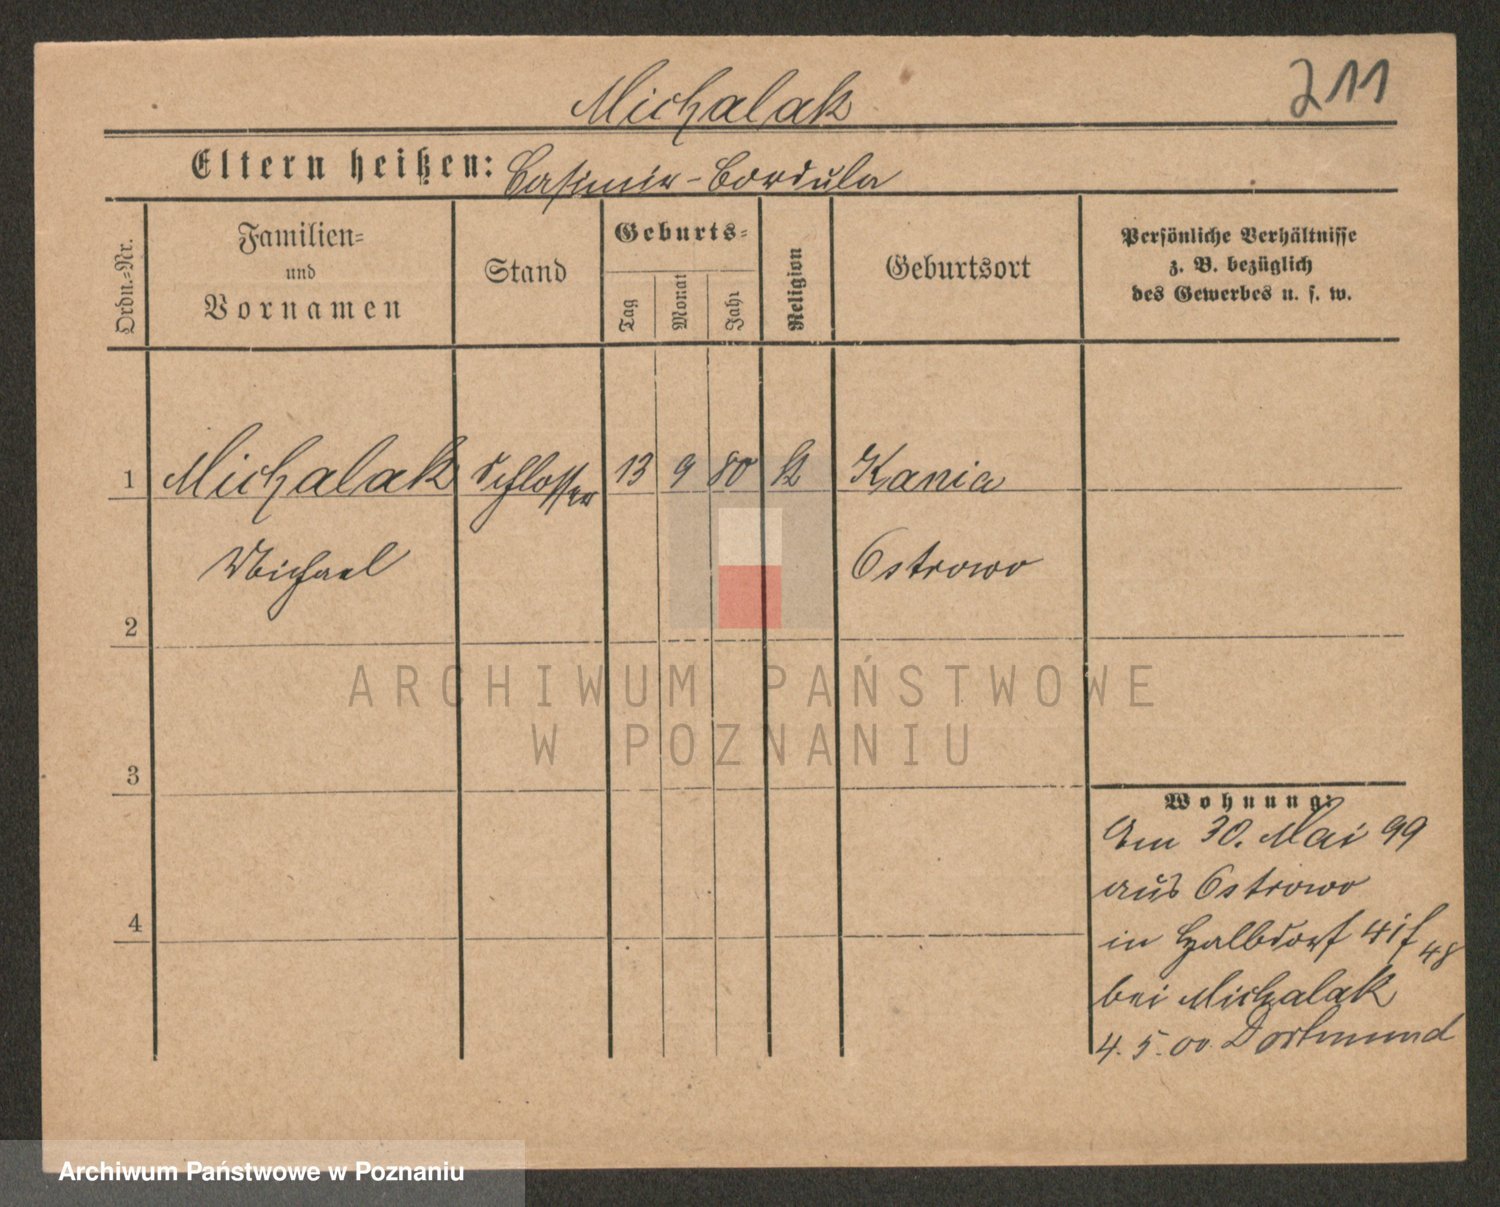 Michalak
211
Eltern heißen: Casimir - Cordula
Ordn.=Nr.
Familien=
und
Vornamen
Stand
Geburts=
Tag
Monat
Jahr
Religion
Geburtsort
Persönliche Verhältnisse
z. B. bezüglich
des Gewerbes u. s. w.
1 Michalak Schlosser 13 9 80 k Kania
Michael Ostrowo
2
3
4
Wohnung:
Am 30. Mai 99
aus Ostrowo
in Halbdorf
48
bei Michalak
4. 5. 00 Dortmund
ARCHIWUM PAŃSTWOWE
W POZNANIU
Archiwum Państwowe w Poznaniu